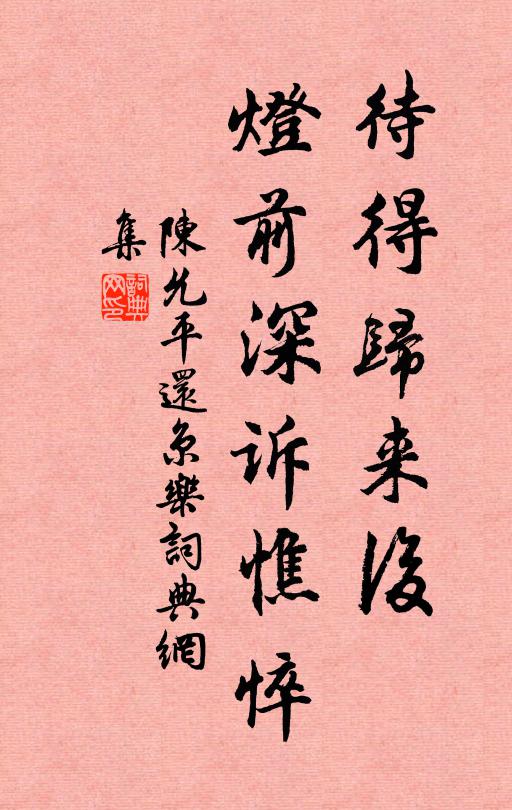 待得歸来後
燈前深訴憔悴
陳允平還京樂詞典網
集
詞典
网印